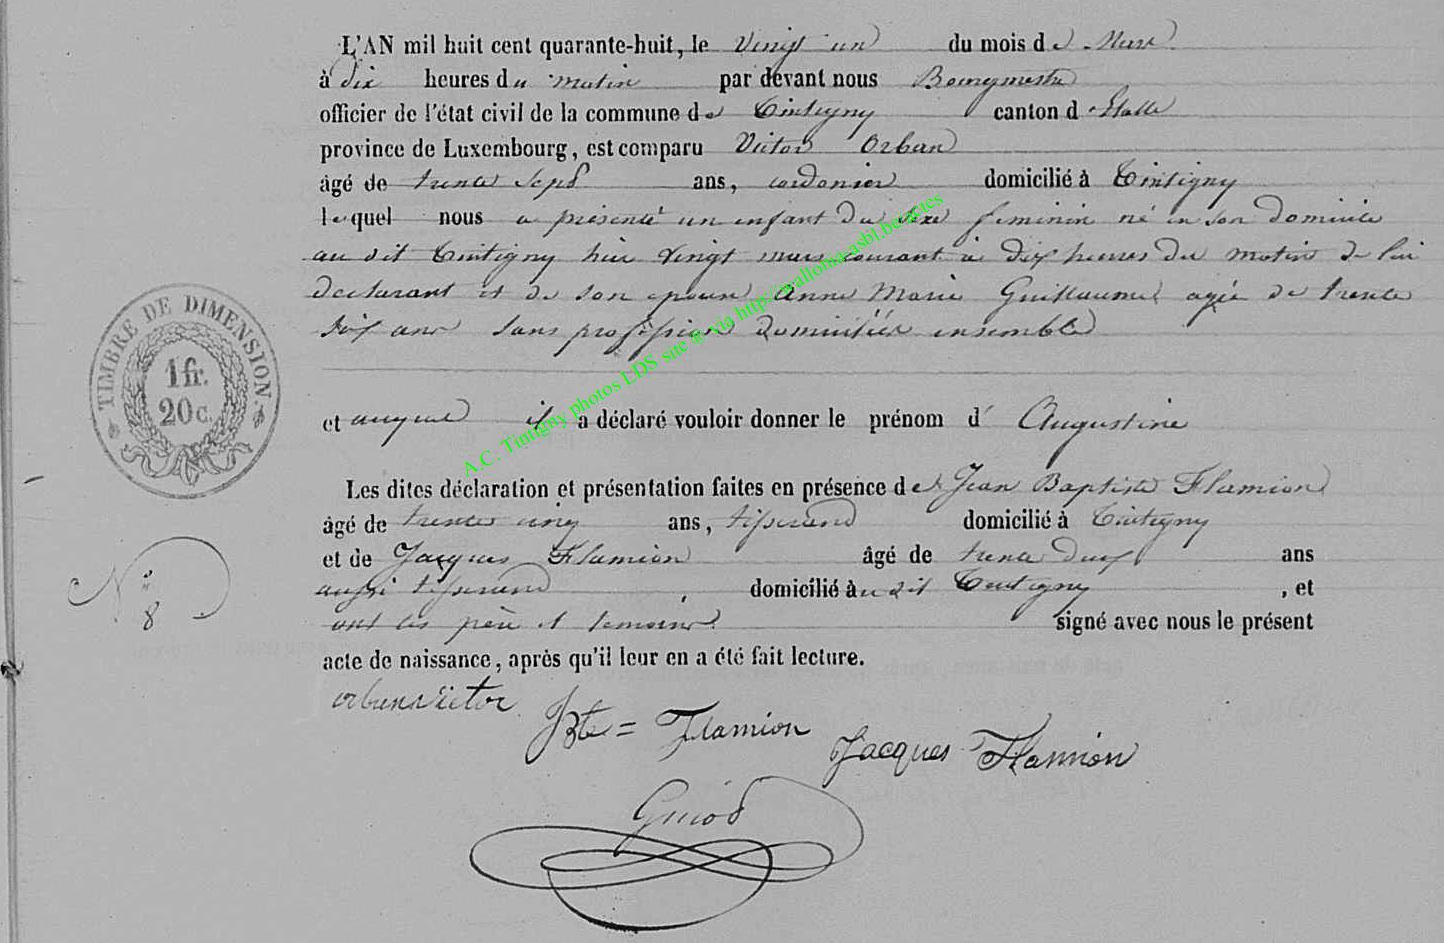 L'AN mil huit cent quarante-huit, le vingt un du mois de Mars
à dix heures du matin par devant nous Bourgmestre
officier de l'état civil de la commune de Tintigny canton d'Etalle
province de Luxembourg, est comparu Victor Orban
âgé de trente sept ans, cordonier domicilié à Tintigny
lequel nous a présenté un enfant du sexe feminin né en son domicile
au dit Tintigny hier vingt mars courant à dix heures du matin de lui
declarant et de son epouse Anne Marie Guillaume agée de trente
six ans sans profession domiciliés ensemble
TIMBRE DE DIMENSION
1 fr.
20 c.
et auquel il a déclaré vouloir donner le prénom d'Augustine
Les dites déclaration et présentation faites en présence de Jean Baptiste Flamion
âgé de trente cinq ans, tisserand domicilié à Tintigny
et de Jacques Flamion âgé de trente deux ans
aussi tisserand, domicilié au dit Tintigny, et
N° 8
ont les père et temoins signé avec nous le présent
acte de naissance, après qu'il leur en a été fait lecture.
orban victor
JBte = Flamion
Jacques Flamion
A.C. Tintigny photos LDS site @ via http://wallonia-asbl.be/actes